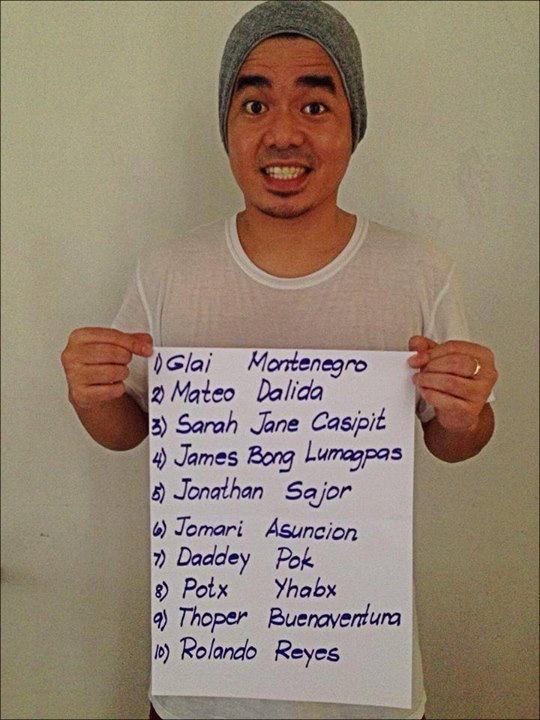 1) Glai Montenegro
2) Mateo Dalida
3) Sarah Jane Casipit
4) James Bong Lumagpas
5) Jonathan Sajor
6) Jomari Asuncion
7) Daddey Pok
8) Potx Yhabx
9) Thoper Buenaventura
10) Rolando Reyes